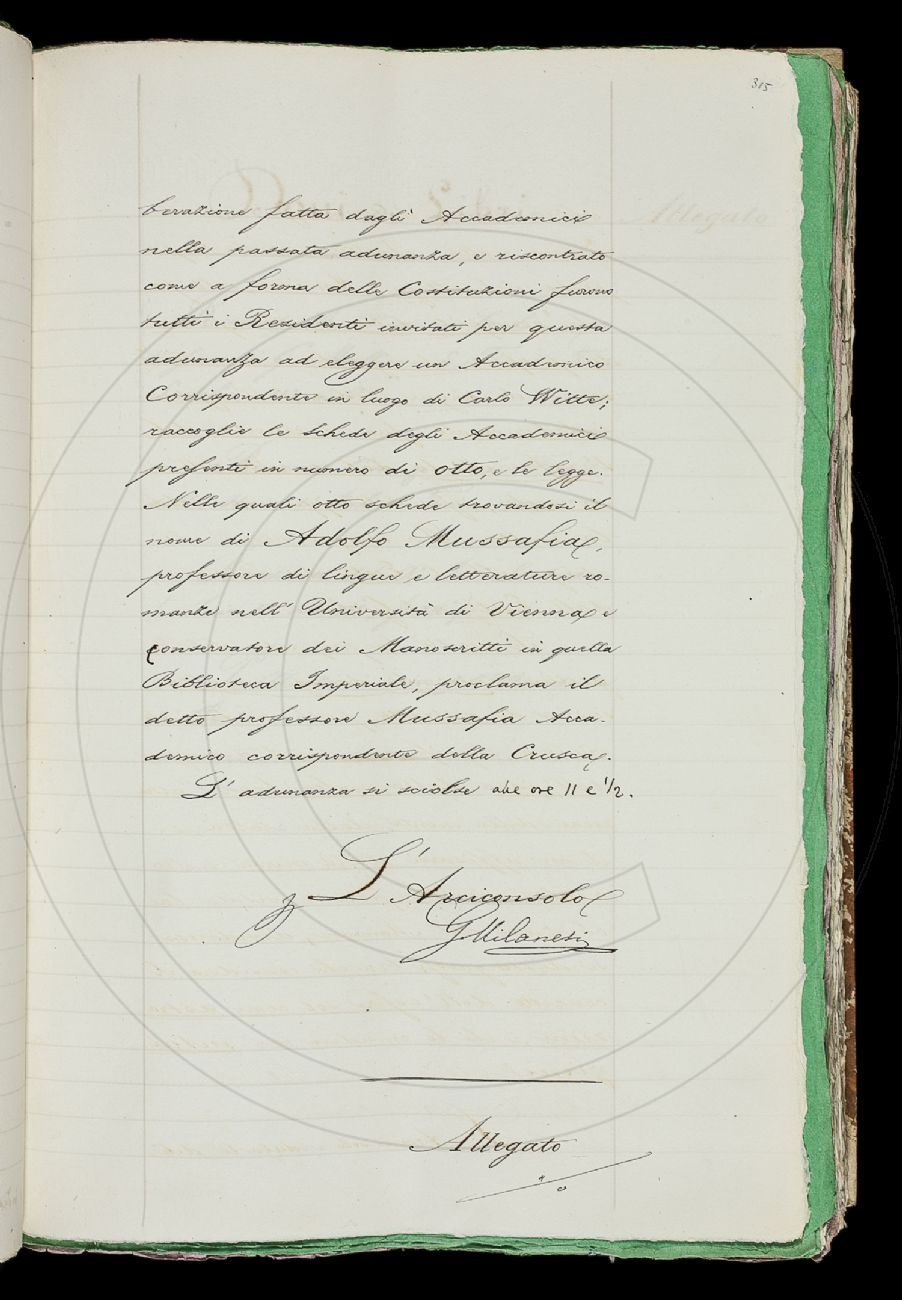 315
berazione fatta dagli Accademici
nella passata adunanza, e riscontrato
come a forma delle Costituzioni furono
tutti i Residenti invitati per questa
adunanza ad eleggere un Accademico
Corrispondente in luogo di Carlo Witte;
raccoglie le schede degli Accademici
presenti in numero di otto, e le legge.
Nelle quali otto schede trovandosi il
nome di Adolfo Mussafia,
professore di lingue e letterature ro-
manze nell'Università di Vienna e
conservatore dei Manoscritti in quella
Biblioteca Imperiale, proclama il
detto professore Mussafia Acca-
demico corrispondente della Crusca.
L'adunanza si sciolse alle ore 11 e 1/2.
L'Arciconsolo
G Milanesi
Allegato